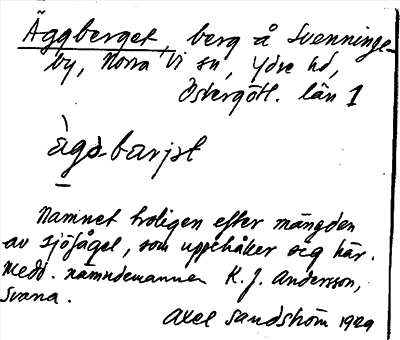 Äggberget, berg å Svenninge-
by, Norra Vi sn, Ydre hd,
Östergötl. län 1
ägəbarjət
Namnet troligen efter mängden
av sjöfågel, som uppehåller sig här.
Medd. nämndemannen K. J. Andersson,
Svana.
Axel Sandström 1929